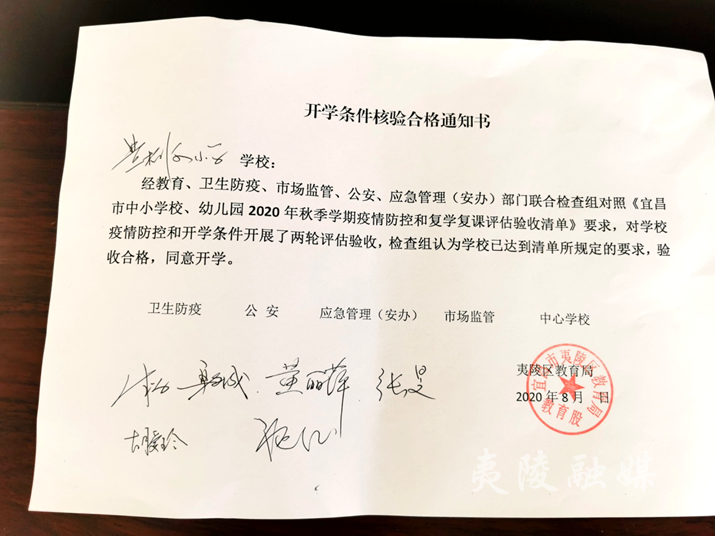 开学条件核验合格通知书
学校：
经教育、卫生防疫、市场监管、公安、应急管理（安办）部门联合检查组对照《宜昌
市中小学校、幼儿园 2020 年秋季学期疫情防控和复学复课评估验收清单》要求，对学校
疫情防控和开学条件开展了两轮评估验收，检查组认为学校已达到清单所规定的要求，验
收合格，同意开学。
卫生防疫 公 安 应急管理（安办） 市场监管 中心学校
董丽萍
夷陵区教育局
2020 年 8 月 日
宜昌市夷陵区教育局
教育股
夷陵融媒